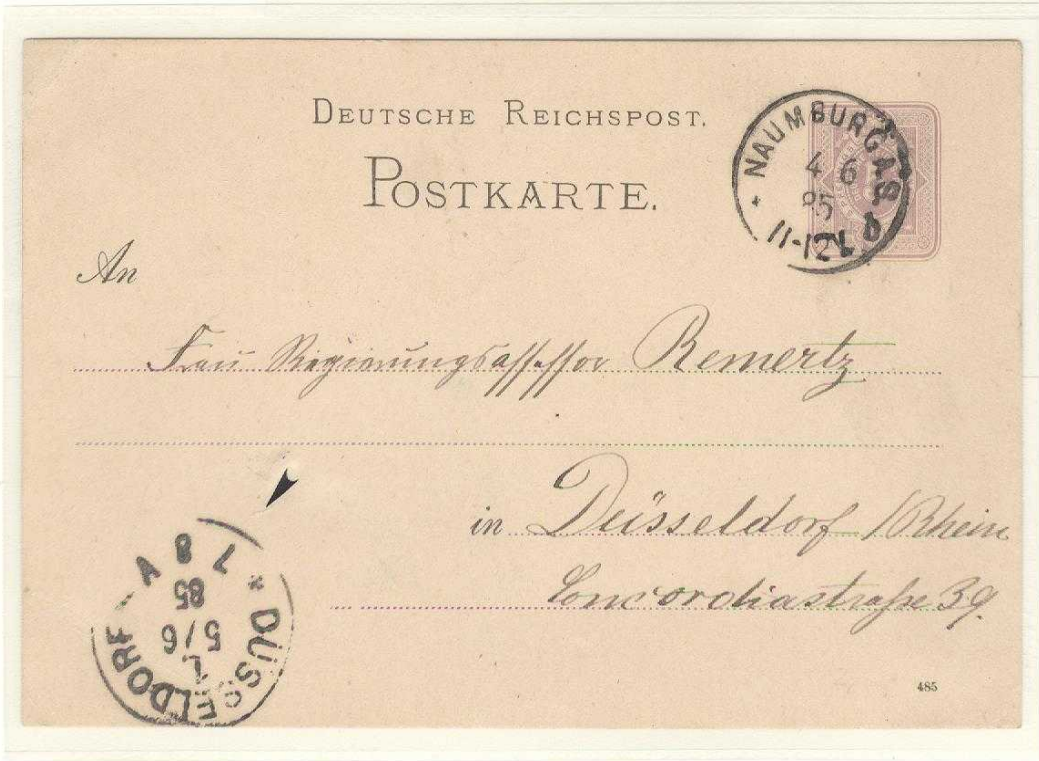 DEUTSCHE REICHSPOST.
POSTKARTE.
NAUMBURG A/S
4 6
85
11-12
An
Frau Regierungsassessor Remertz
in Düsseldorf /Rhein
Concordiastraße 39.
DÜSSELDORF
5/6
85
7 8
A
485